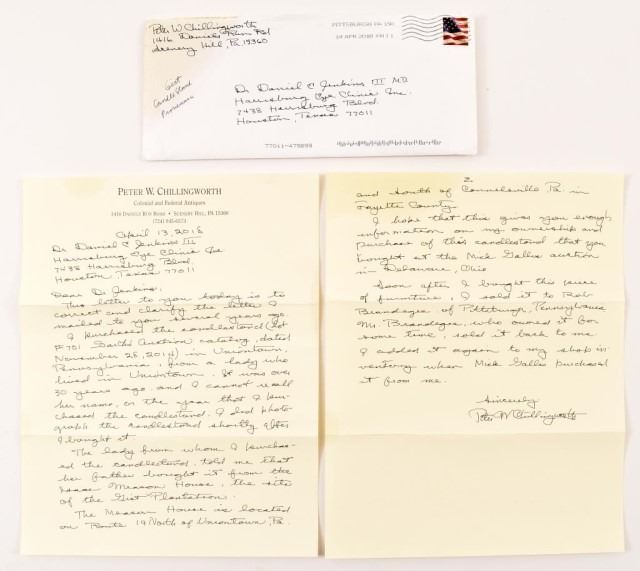 Peter W. Chillingworth
1416 Daniels Run Rd
Scenery Hill, Pa 15360
PITTSBURGH PA 150
14 APR 2018 PM 1 L
Gist
Candlestand
Provenance
Dr Daniel C Jenkins III M.D.
Harrisburg Eye Clinic Inc.
7438 Harrisburg Blvd.
Houston, Texas 77011
77011-475898
PETER W. CHILLINGWORTH
Colonial and Federal Antiques
1416 DANIELS RUN ROAD • SCENERY HILL, PA 15360
April 13, 2018
Dr Daniel C Jenkins III
Harrisburg Eye Clinic Inc
7438 Harrisburg Blvd.
Houston, Texas 77011
Dear Dr Jenkins:
This letter to you today is to
correct and clarify the letter I
mailed to you several years ago.
I purchased the candlestand (lot
#701 Garths Auction catalog, dated
November 28, 2014) in Uniontown,
Pennsylvania, from a lady who
lived in Uniontown. It was over
30 years ago, and I cannot recall
her name, or the year that I pur-
chased the candlestand. I did photo-
graph the candlestand shortly after
I bought it
The lady from whom I purchas-
ed the candlestand, told me that
her father bought it from the
Isaac Meason House, the site
of the Gist Plantation.
The Meason House is located
on Route 119 North of Uniontown, Pa.
2.
and South of Connelsville Pa. in
Fayette County.
I hope that this gives you enough
information on my ownership and
purchase of this candlestand that you
bought at the Mick Gallis auction
in Delaware, Ohio
Soon after I bought this piece
of furniture, I sold it to Rob
Brandegee of Pittsburgh, Pennsylvania
Mr. Brandegee, who owned it for
some time, sold it back to me.
I added it again to my shop in-
ventory when Mick Gallis purchased
it from me.
Sincerely
Peter W Chillingworth